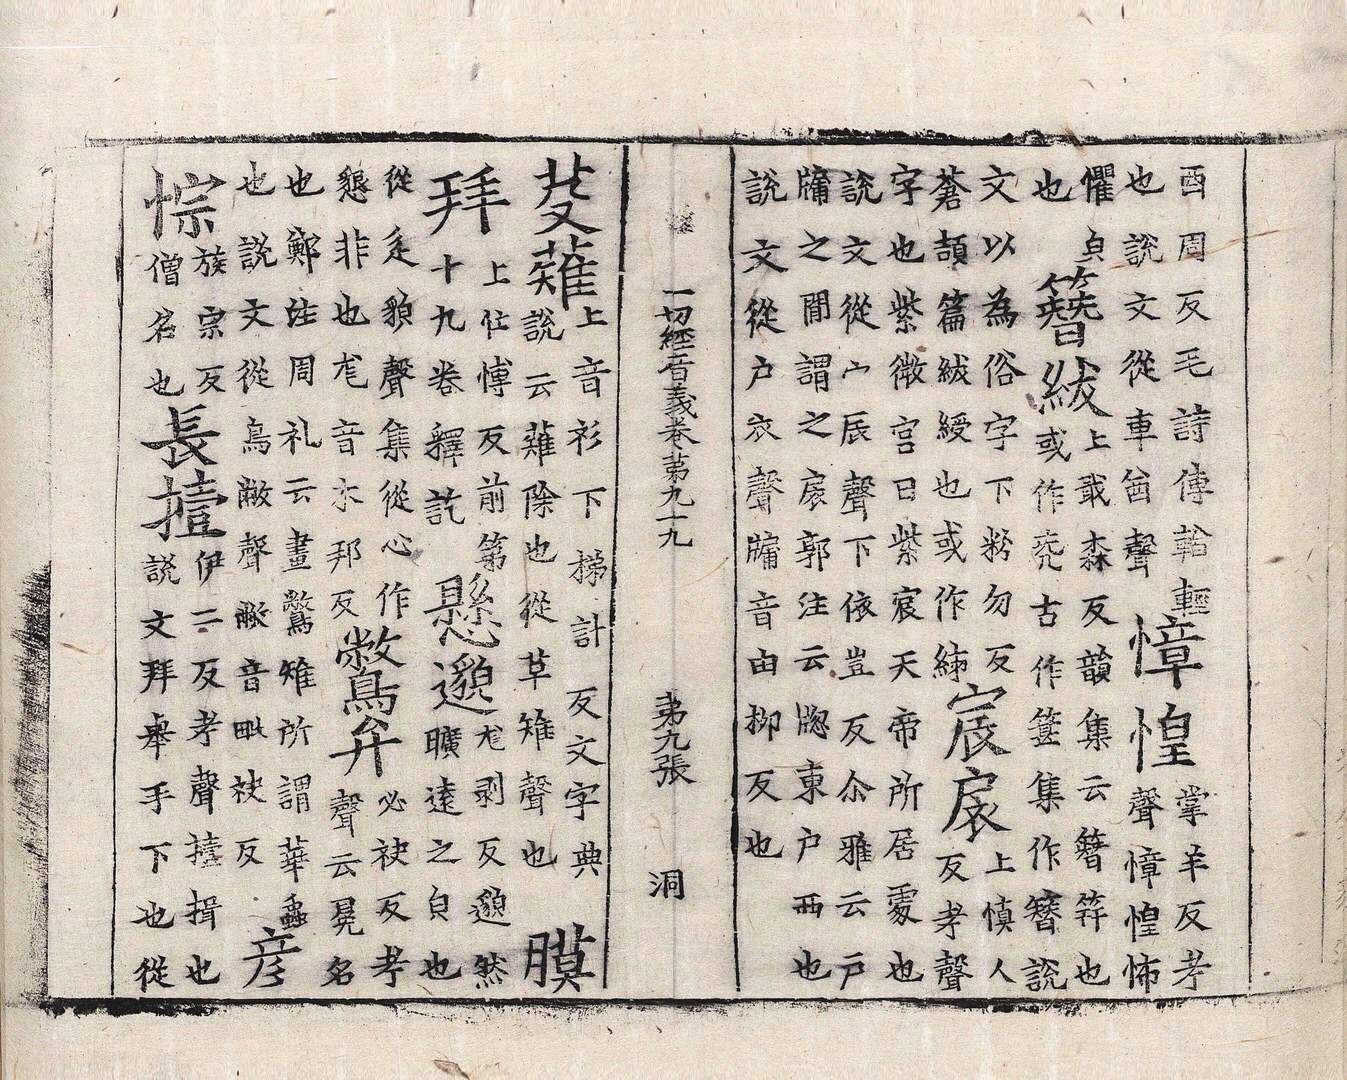 酉周反毛詩傳輶輕
也說文從車酋聲
慞惶
掌羊反考
聲慞惶怖
懼皃
也
簪紱
上戢森反韻集云簪笄也
或作兂古作篸集作簪說
文以為俗字下粉勿反
蒼頡篇紱綬也或作紼
宸扆
上慎人
反考聲
字也紫微宮曰紫宸天帝所居處也
說文從宀辰聲下依豈反尒雅云戶
牖之間謂之扆郭注云牎東戶西也
說文從戶衣聲牖音由柳反也
一切經音義卷第九十九 第九張 洞
芟薙
上音衫下梯計反文字典
說云薙除也從草雉聲也
膜
拜
上仕慱反前第
十九卷釋訖
懸邈
尨剥反邈然
曠遠之皃也
從辵貌聲集從心作
懇非也尨音氷邦反
鷩弁
必袂反考
聲云冕名
也鄭注周礼云畫鷩雉所謂華蟲
也說文從鳥敝聲敝音毗袂反
彦
悰
族宗反
僧名也
長撎
伊二反考聲撎揖也
說文拜舉手下也從